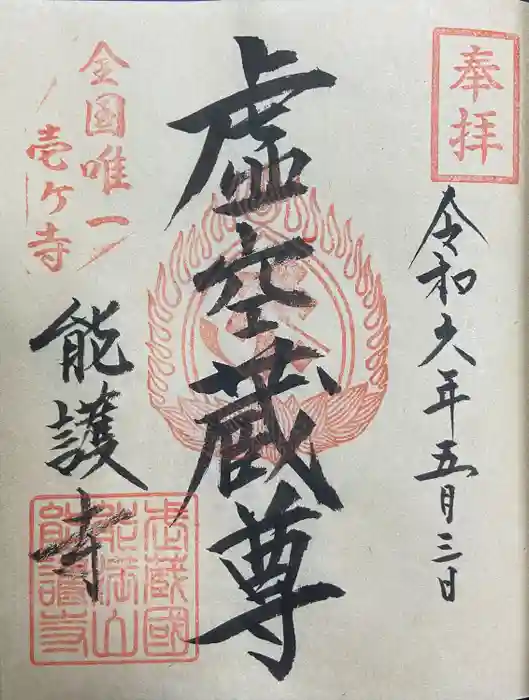 奉拝
令和六年五月三日
虚空蔵尊
全国唯一
壱ケ寺
能護寺
武蔵國
能護寺